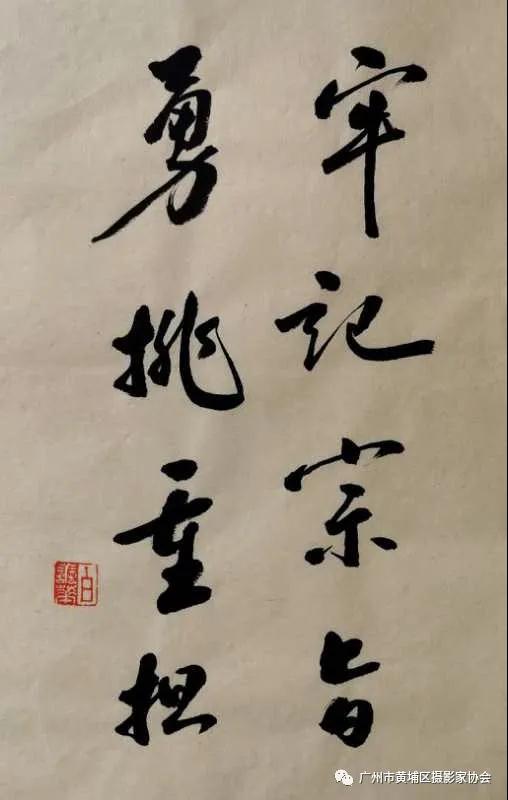 牢记宗旨
勇挑重担
广州市黄埔区摄影家协会